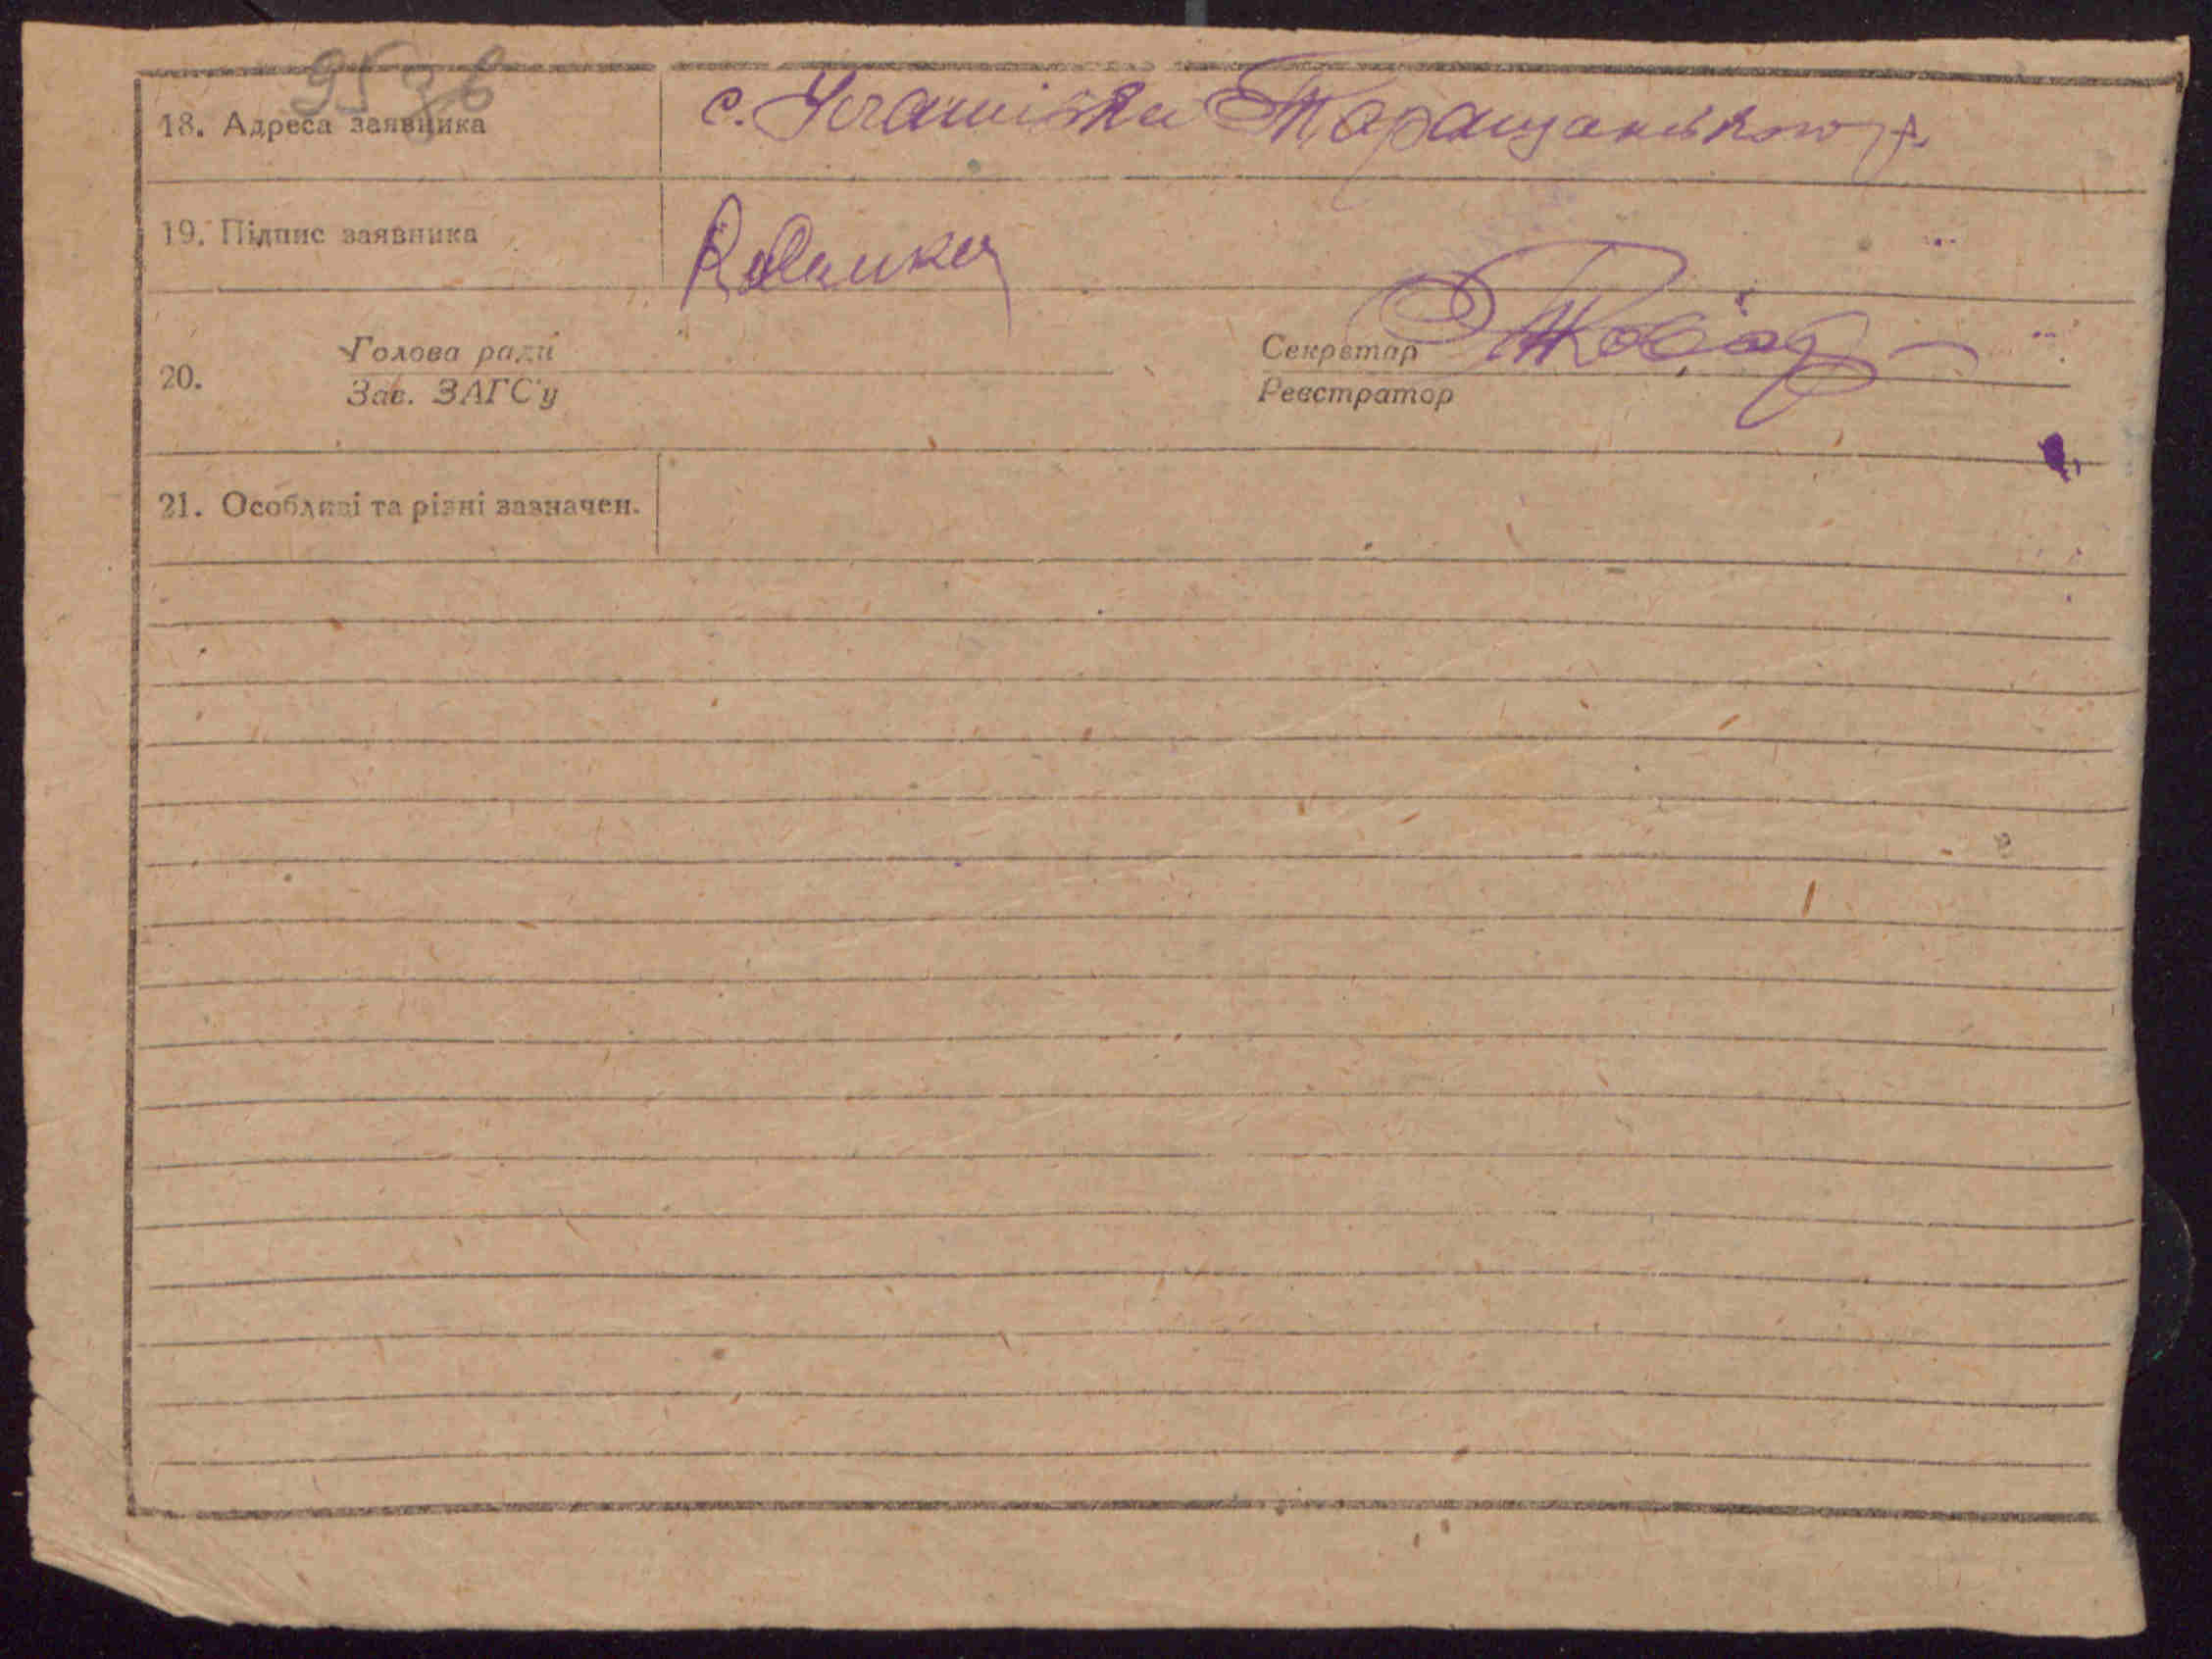 95 зв
18. Адреса заявника с. Улашівка Таращанського р.
19. Підпис заявника
Голова ради Секретар
20.
Зав. ЗАГС'у Реєстратор
21. Особливі та різні зазначен.